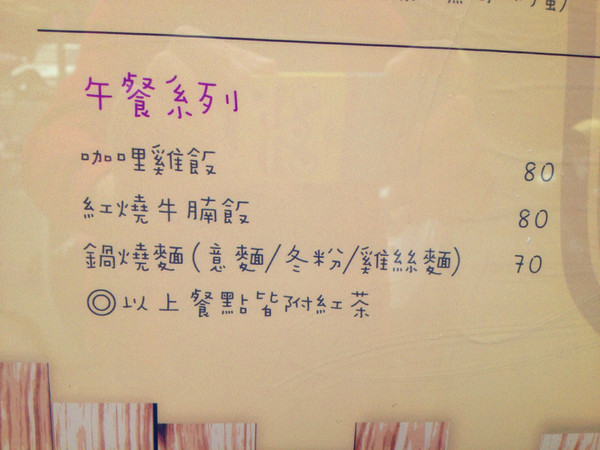 午餐系列
咖哩雞飯 80
紅燒牛腩飯 80
鍋燒麵(意麵/冬粉/雞絲麵) 70
◎以上餐點皆附紅茶